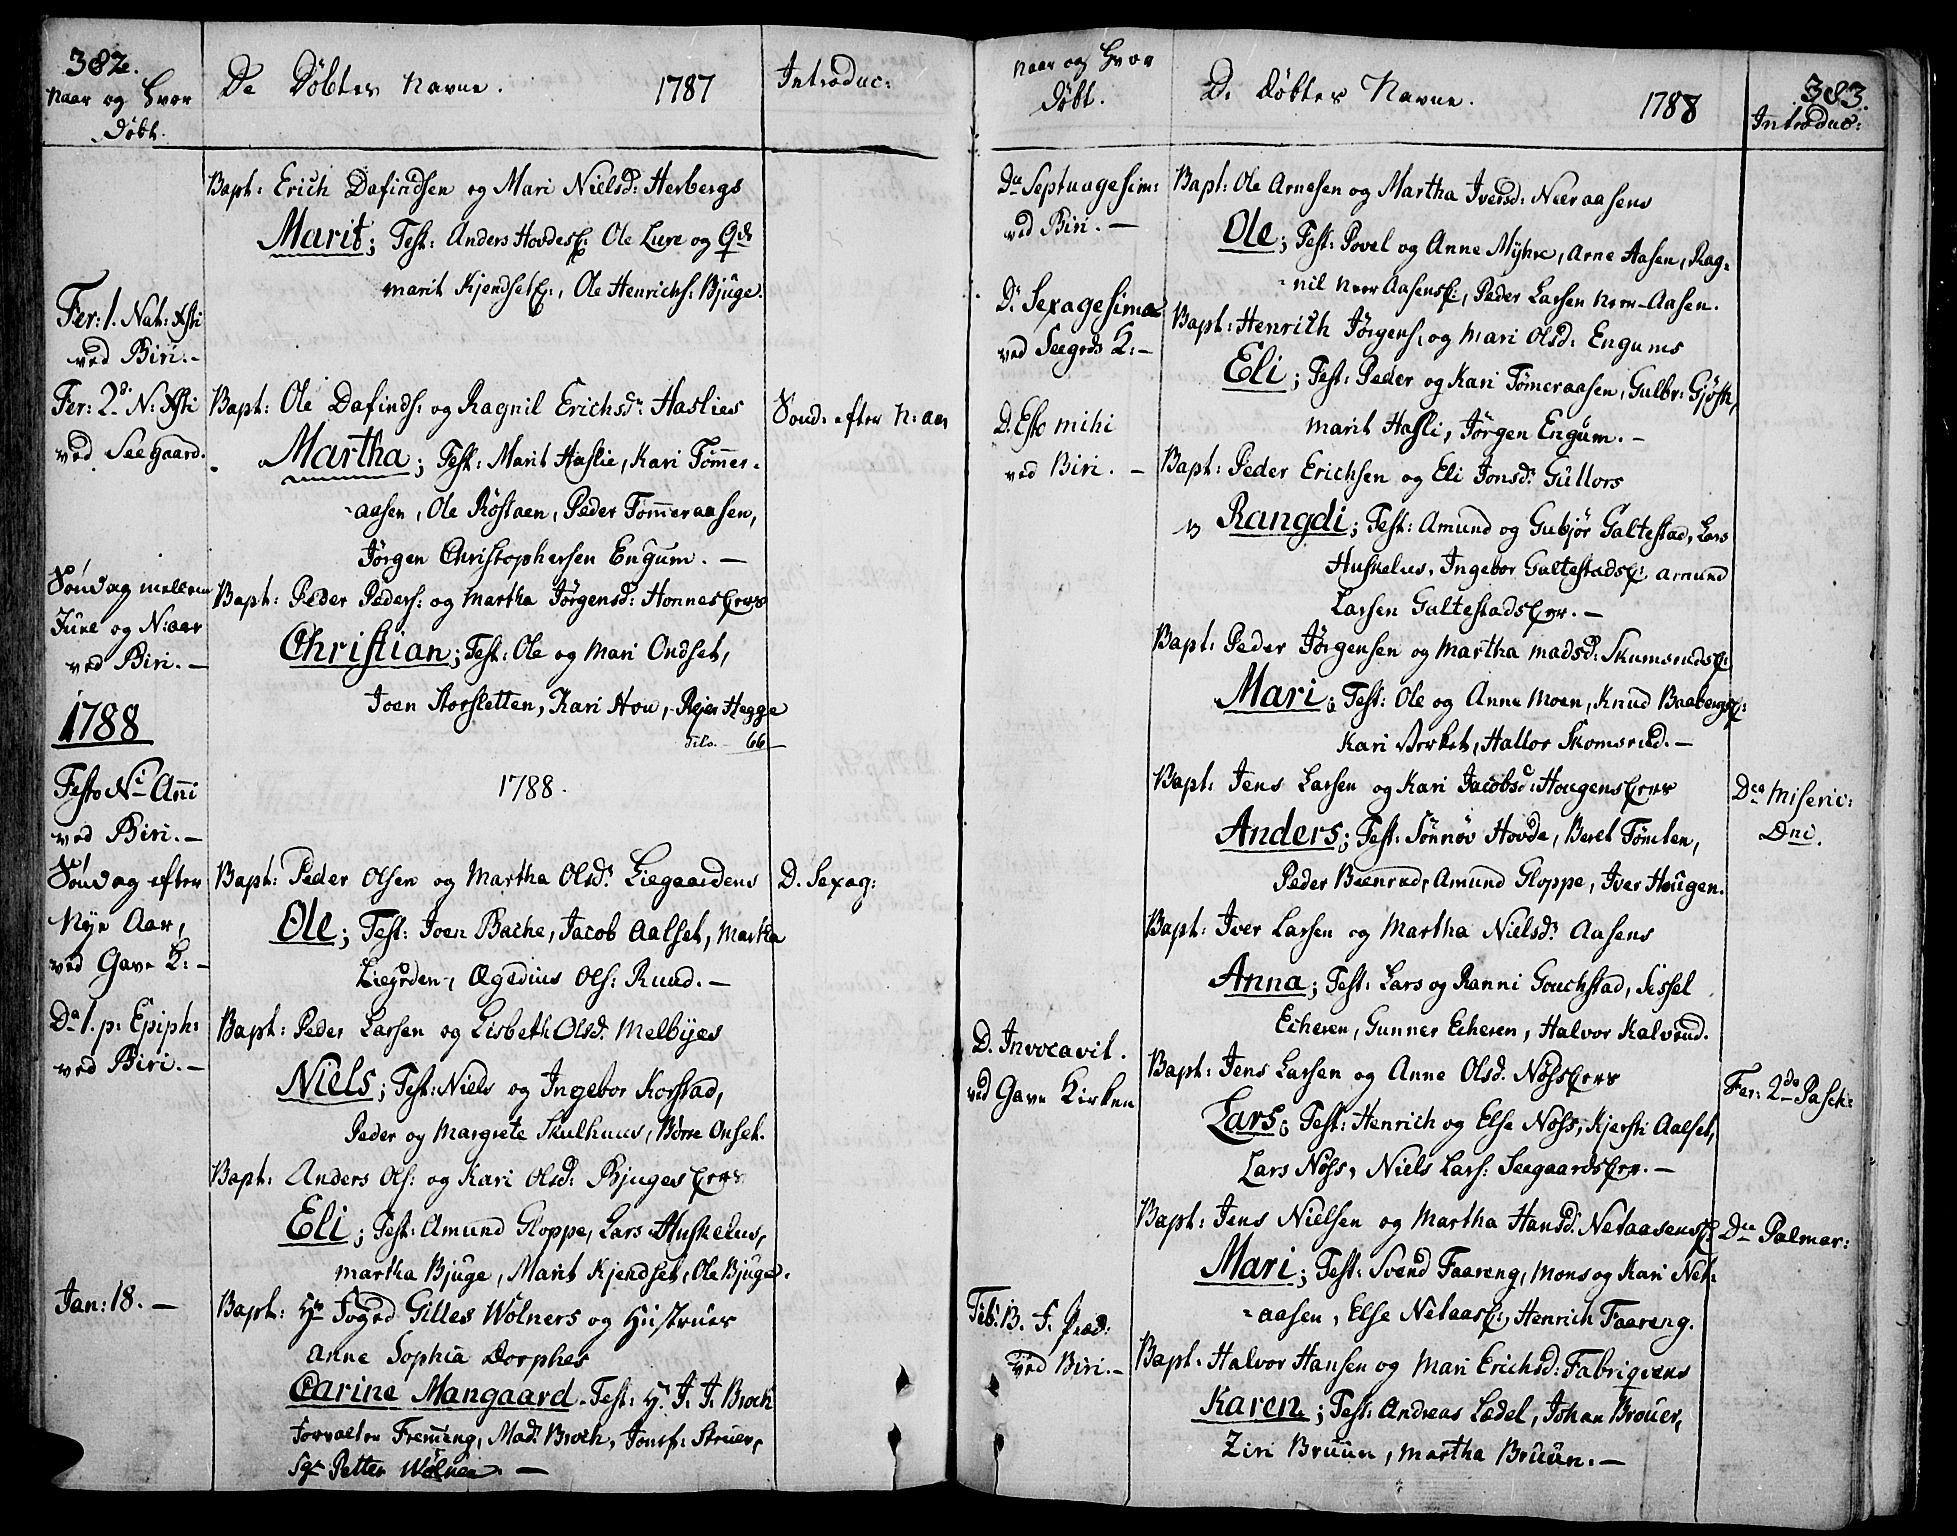 382.
Naar og Hvor
Døbt.
De Døbtes Navne. 1787
Introduc:
Bapt: Erich Dafindsen og Mari Nielsd: Herbergs
Marit; Test: Anders Hovdes Ole Lure og
Marit Kjendset, Ole Henrichs: Bjuge.
Fer: 1. Nat: Xsti
ved Biri.-
Fer: 2d N: Xsti
ved Seegaard.
Bapt: Ole Dafinds: og Ragnil Erichsd: Haslies
Sønd: efter N: aar
Martha; Test: Marit Haslie, Kari Tømmer-
aasen, Ole Røstaen, Peder Tømmeraasen,
Jørgen Christophersen Engum. -
Søndag mellem
Jule og N: aar
ved Biri. -
Bapt: Peder Peders: og Martha Jørgensd: Honnes
Christian; Test: Ole og Mari Ondset,
Joen Storsletten, Kari Hou, Rejer Hegge
66
1788
1788.
Festo Ni Anni
ved Biri. -
Søndag efter
Nye Aar,
ved Gave K: -
Bapt: Peder Olsen og Martha Olsd: Liegaardens
D. Sexag:
Ole; Test: Joen Bache, Jacob Aalset, Martha
Liegrden, Ægedius Ols: Ruud. -
Da 1. p: Epiph:
ved Biri. -
Bapt: Peder Larsen og Lisbeth Olsd: Melbyes
Niels; Test: Niels og Ingebor Korstad,
Peder og Margrete Skulhuus, Børre Onset.
Bapt: Anders Ols: og Kari Olsd: Bjuges
Eli; Test: Amund Gloppe, Lars Huskelus,
Martha Bjuge, Marit Kjendset, Ole Bjuge.
Jan: 18. -
Bapt: Hr Foged Gilles Wølners og Hustrues
Anne Sophia Dorphes
Carine Mangaard. Test: Hr. J. J. Broch
Forvalter Fremeng, Mad: Broch, Jomf: Struer,
Sgr Petter Wølner. -
Naar og Hvor
Døbt.
De Døbtes Navne. 1788
383.
Introduc:
Da Septuagesim:
ved Biri. -
Bapt: Ole Arnesen og Martha Iversd: Neeraasens
Ole; Test: Povel og Anne Myhre, Arne Aasen, Rag-
nil Neer Aasens, Peder Larsen Neer-Aasen.
D. Sexagesima
ved Seegrds K: -
Bapt: Henrich Jørgens: og Mari Olsd: Engums
Eli; Test: Peder og Kari Tømeraasen, Gulbr: Gjøsth,
Marit Hasli, Jørgen Engum. -
D. Esto mihi
ved Biri. -
Bapt: Peder Erichsen og Eli Jonsd: Gullors
Rangdi; Test: Amund og Gubjør Galtestad, Lars
Huskelus, Ingebor Galtestads Amund
Larsen Galtestads. -
Bapt: Peder Jørgensen og Martha Madsd: Skumsruds
Mari; Test: Ole og Anne Moen, Knud Baabergs
Kari Verket, Hallor Skomsrud. -
Bapt: Jens Larsen og Kari Jacobsd: Hougens
Dca Miseric:
Dni.
Anders; Test: Sønnøv Hovde, Beret Tømten,
Peder Beenrud, Amund Gloppe, Iver Hougen.
Bapt: Iver Larsen og Martha Nielsd: Aasens
Anna; Test: Lars og Ranni Gouchstad, Sissel
Echeren, Gunner Echeren, Halvor Kalvrud.
D. Invocavit.
ved Gave Kirken
Bapt: Jens Larsen og Anne Olsd: Nøss
Fer: 2de Pasch:
Lars; Test: Henrich og Else Nøss, Kjersti Aalset,
Lars Nøss, Niels Lars: Seegaards. -
Bapt: Jens Nielsen og Martha Hansd: Netaasens
Dca Palmar:
Mari; Test: Svend Faareng, Mons og Kari Net-
aasen, Else Netaas, Henrich Faareng.
Feb: 13. F. Præd:
ved Biri. -
Bapt: Halvor Hansen og Mari Erichsd: Fabriqvens
Karen; Test: Andreas Ledel, Johan Brouer,
Ziri Bruun, Martha Bruun. -